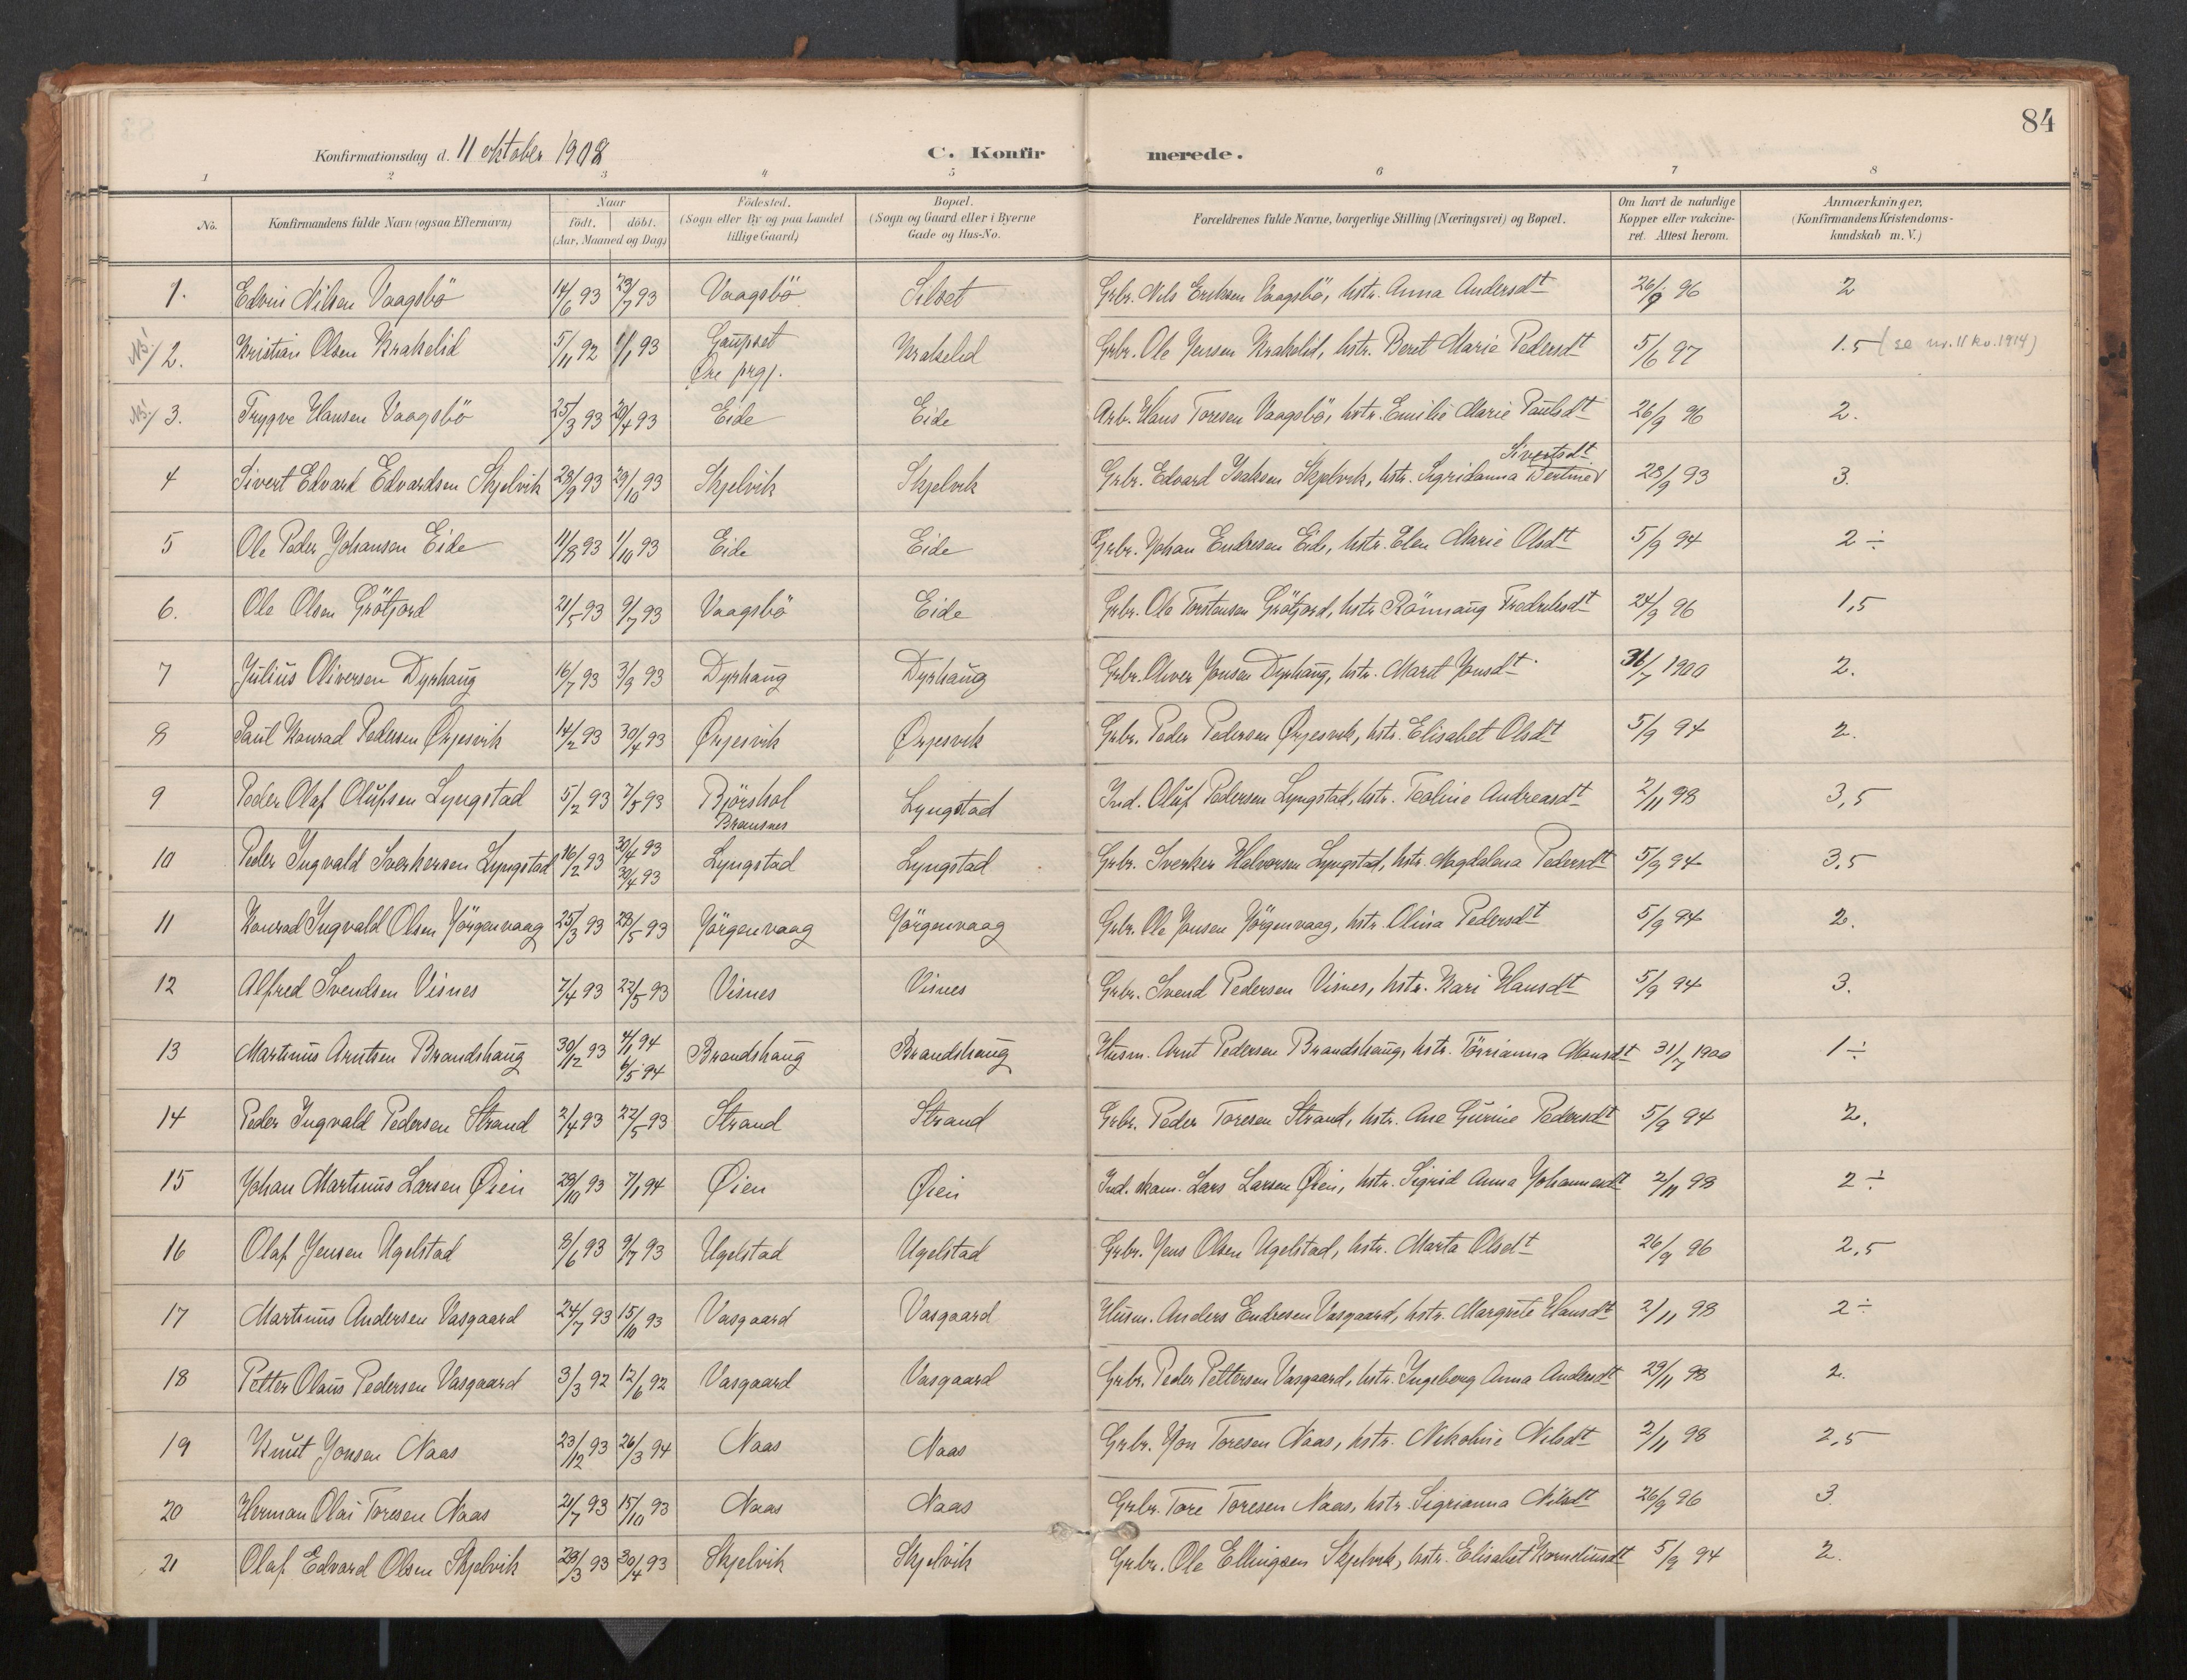 84
Konfirmationsdag d. 11 oktober 1908
C. Konfirmerede.
1 2 3 4 5 6 7 8
No. | Konfirmandens fulde Navn (ogsaa Efternavn) | Naar født, døbt. (Aar, Maaned og Dag) | Fødested. (Sogn eller By og paa Landet tillige Gaard) | Bopæl. (Sogn og Gaard eller i Byerne Gade og Hus-No. | Forældrenes fulde Navne, borgerlige Stilling (Næringsvei) og Bopæl. | Om havt de naturlige Kopper eller vakcineret. Attest herom. | Anmærkninger. (Konfirmandens Kristendomskundskab m. V.)
1. Edvin Nilsen Vaagsbö 14/6 93 23/7 93 Vaagsbö Silset Grbr. Nils Eriksen Vaagsbö, hstr. Anna Andersdt 26/9 96 2
NB! 2. Kristian Olsen Krakelid 5/11 92 1/1 93 Gaupset Øre prgj. Krakelid Grbr. Ole Jensen Krakelid, hstr. Beret Marie Pedersdt 5/6 97 1.5 (se nr. 11 ko. 1914)
NB! 3. Trygve Hansen Vaagsbö 25/3 93 20/4 93 Eide Eide Arb. Hans Toresen Vaagsbö, hstr. Emilie Marie Paulsdt 26/9 96 2.
4 Sivert Edvard Edvardsen Skjelvik 28/9 93 29/10 93 Skjelvik Skjelvik Grbr. Edvard Isaksen Skjelvik, hstr. Sigridanna Bertine Sivertsdt 23/9 93 3.
5 Ole Peder Johansen Eide 11/8 93 1/10 93 Eide Eide Grbr. Johan Endresen Eide, hstr. Elen Marie Olsdt 5/9 94 2 ÷
6. Ole Olsen Gröfjord 21/5 93 9/7 93 Vaagsbö Eide Grbr. Ole Torstensen Gröfjord, hstr. Rönnaug Fredriksdt 24/9 96 1,5
7 Julius Oliversen Dyrhaug 16/7 93 3/9 93 Dyrhaug Dyrhaug Grbr. Oliver Jonsen Dyrhaug, hstr. Marit Jonsdt. 31/7 1900 2.
8 Paul Konrad Pedersen Ørjesvik 14/2 93 30/4 93 Ørjesvik Ørjesvik Grbr. Peder Pedersen Ørjesvik, hstr. Elisabet Olsdt 5/9 94 2.
9 Peder Olaf Olufsen Lyngstad 5/2 93 7/5 93 Björshol Bremsnes Lyngstad Ind. Oluf Pedersen Lyngstad, hstr. Teoline Andreasdt 2/11 98 3,5
10 Peder Ingvald Sverkersen Lyngstad 16/2 93 30/4 93 30/4 93 Lyngstad Lyngstad Grbr. Sverker Halvorsen Lyngstad, hstr. Magdalena Pedersdt 5/9 94 3,5
11 Konrad Ingvald Olsen Jörgenvaag 25/3 93 28/5 93 Jörgenvaag Jörgenvaag Grbr. Ole Jonsen Jörgenvaag, hstr. Olina Pedersdt 5/9 94 2.
12 Alfred Svendsen Visnes 7/4 93 22/5 93 Visnes Visnes Grbr. Svend Pedersen Visnes, hstr. Kari Hansdt 5/9 94 3.
13 Martinus Arntsen Brandshaug 30/12 93 4/1 94 6/5 94 Brandshaug Brandshaug Husm. Arnt Pedersen Brandshaug, hstr. Törrianna Monsdt 31/7 1900 1 ÷
14 Peder Ingvald Pedersen Strand 2/4 93 22/5 93 Strand Strand Grbr. Peder Toresen Strand, hstr. Ane Gurine Pedersdt 5/9 94 2.
15 Johan Martinus Larsen Øien 29/10 93 7/1 94 Øien Øien Ind. skom. Lars Larsen Øien, hstr. Sigrid Anna Johannesdt 2/11 98 2 ÷
16 Olaf Jensen Ugelstad 8/6 93 9/7 93 Ugelstad Ugelstad Grbr. Jens Olsen Ugelstad, hstr. Marta Olsdt 26/9 96 2,5
17 Martinus Andersen Vasgaard 24/7 93 15/10 93 Vasgaard Vasgaard Husm. Anders Endresen Vasgaard, hstr. Margrete Hansdt 2/11 98 2 ÷
18 Petter Olaus Pedersen Vasgaard 3/3 92 12/6 92 Vasgaard Vasgaard Grbr. Peder Pettersen Vasgaard, hstr. Ingeborg Anna Andersdt 29/11 98 2.
19 Knut Jonsen Naas 23/12 93 26/3 94 Naas Naas Grbr. Jon Toresen Naas, hstr. Nikoline Nilsdt 2/11 98 2,5
20 Herman Olai Toresen Naas 21/7 93 15/10 93 Naas Naas Grbr. Tore Toresen Naas, hstr. Sigrianna Nilsdt 26/9 96 3.
21 Olaf Edvard Olsen Skjelvik 29/3 93 30/4 93 Skjelvik Skjelvik Grbr. Ole Ellingsen Skjelvik, hstr. Elisabet Korneliusdt 5/9 94 2.